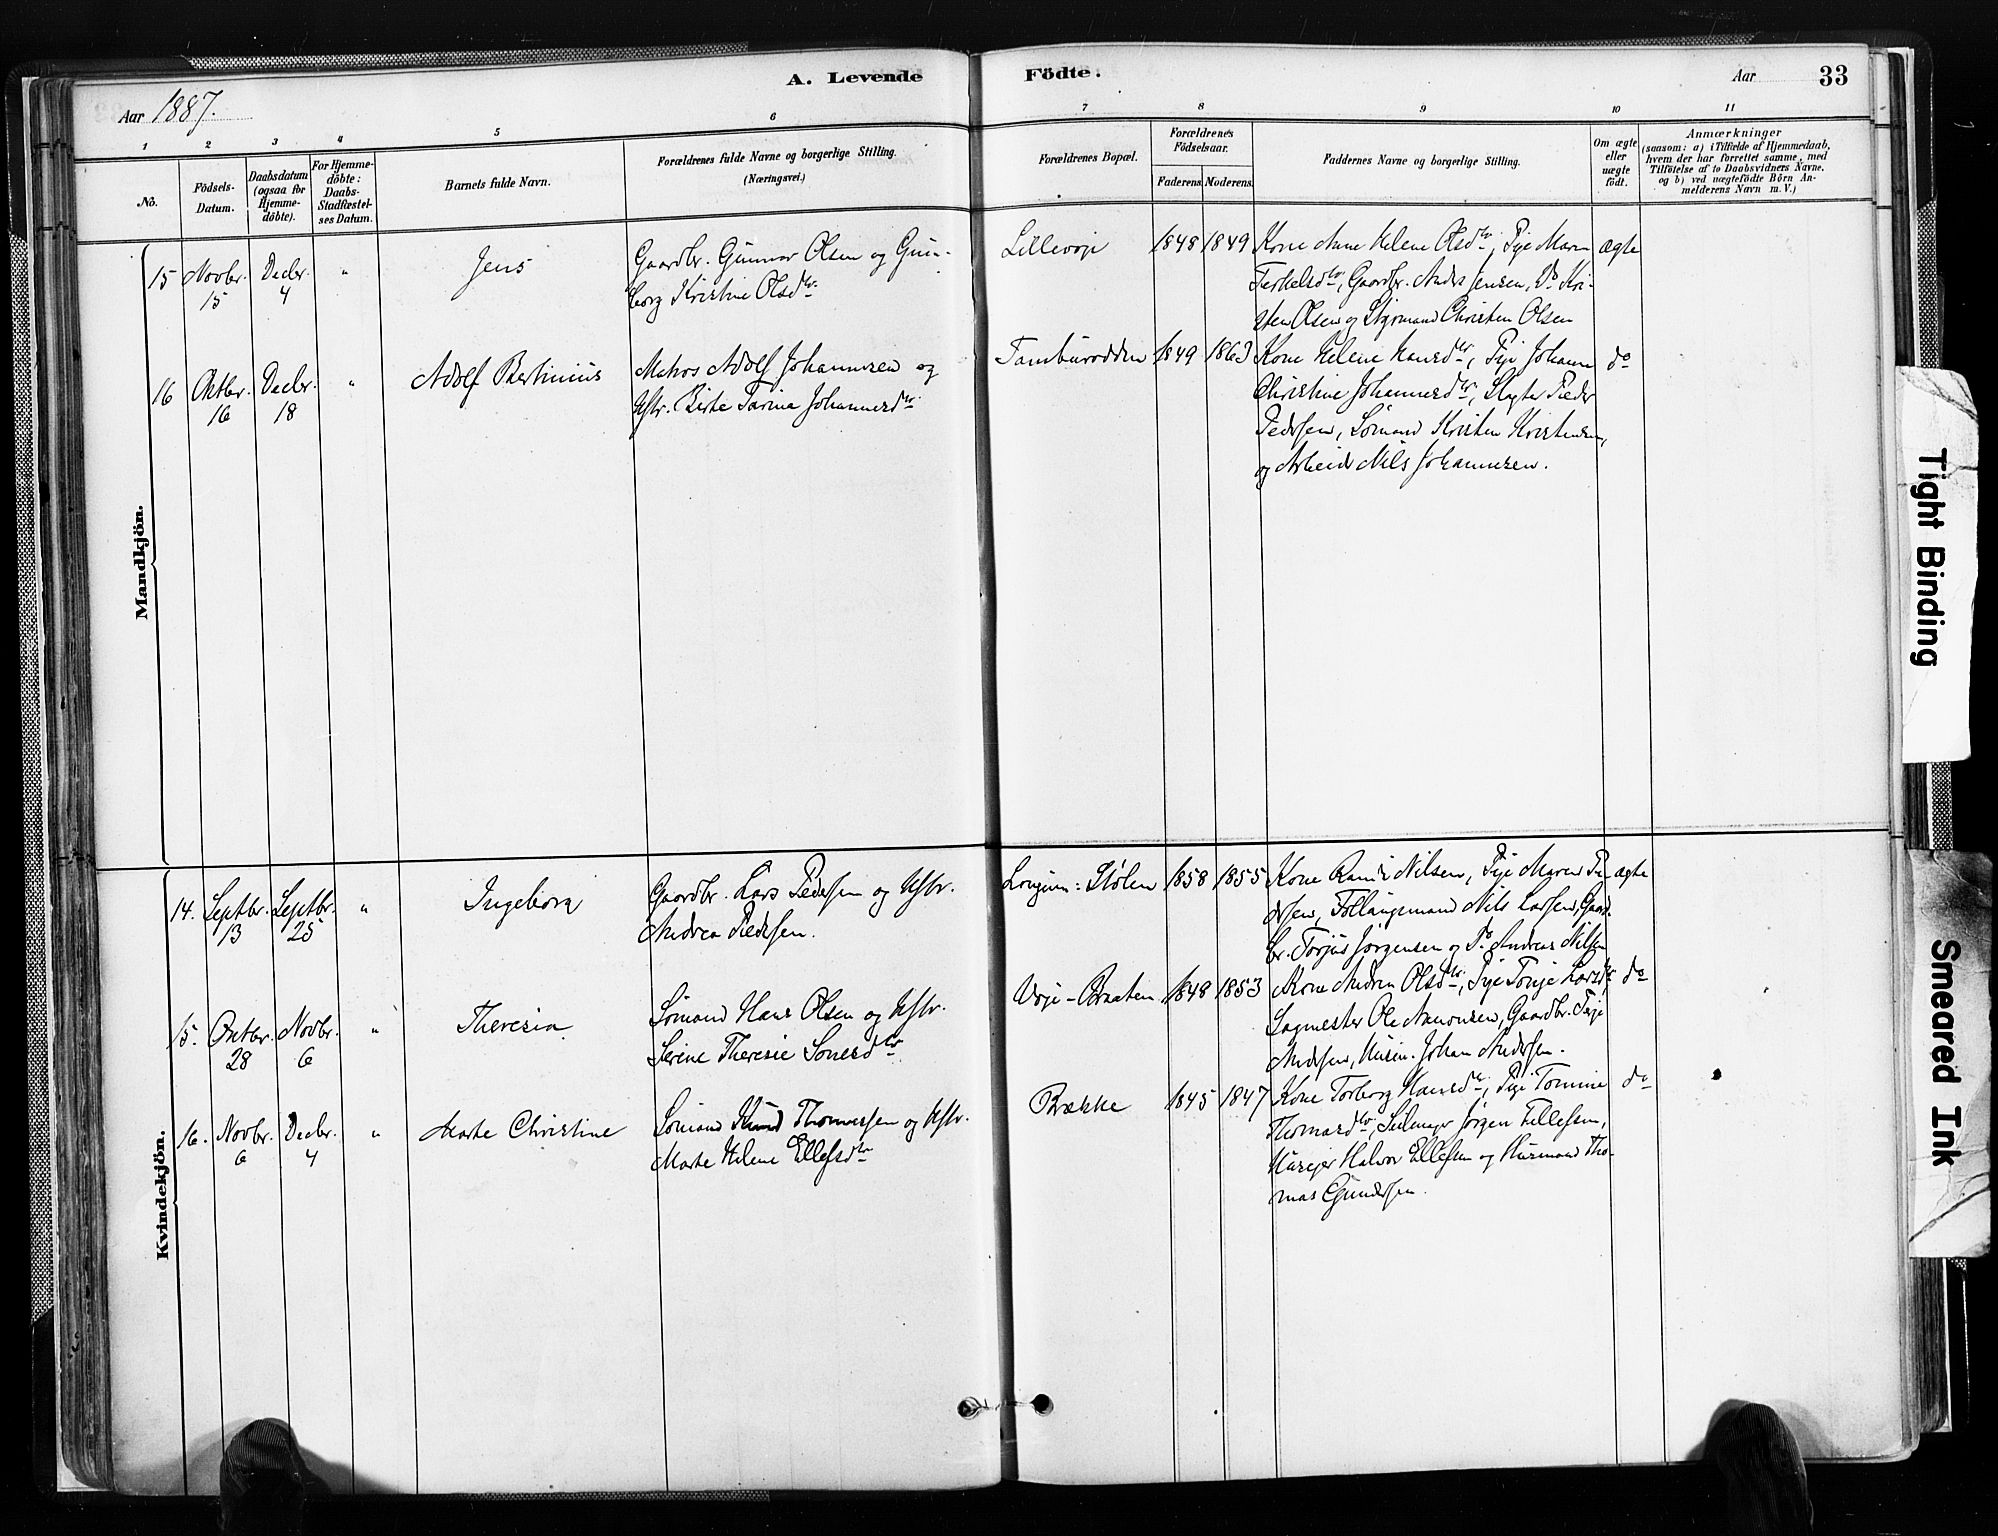 A. Levende Födte.
Aar 1887.
Aar 33
1 2 3 4 5 6 7 8 9 10 11
No.
Födsels-
Datum.
Daabsdatum
(ogsaa for
Hjemme-
döbte).
For Hjemme-
döbte:
Daabs-
Stadfæstel-
ses Datum.
Barnets fulde Navn.
Forældrenes fulde Navne og borgerlige Stilling.
(Næringsvei.)
Forældrenes Bopæl.
Forældrenes
Födselsaar.
Faderens. Moderens.
Faddernes Navne og borgerlige Stilling.
Om ægte
eller
uægte
födt.
Anmærkninger
(saasom: a) i Tilfælde af Hjemmedaab,
hvem der har forrettet samme, med
Tilföielse af to Daabsvidners Navne,
og b) ved uægtefödte Börn An-
melderens Navn m. V.)
Mandkjön.
15 Novbr. 15 Decbr. 4 " Jens
Gaardbr. Gunnar Olsen og Gun-
borg Kristine Olsdtr.
Lillevoje 1848 1849
Kone Anne Helene Olsdtr, Pige Maren
Terkelsdtr, Gaardbr. Anders Jensen, Do Kri-
sten Olsen og Styrmand Christen Olsen
ægte
16 Oktbr. 16 Decbr. 18 " Adolf Bertinius
Matros Adolf Johannesen og
Hstr. Birte Tarine Johannesdtr
Tamburodden 1849 1863
Kone Helene Hansdtr, Pige Johanne
Christine Johannesdtr, Slagter Peder
Pedersen, Sömand Kristen Kristensen,
og Arbeid. Nils Johannesen.
do
Kvindekjön.
14. Septbr. 13 Septbr. 25 " Ingeborg
Gaardbr. Lars Pedersen og Hstr.
Andrea Pedersen.
Longum: Stölen 1858 1855
Kone Nilsen, Pige Maren Pe-
dersen, Nils Larsen, Gaard-
br. Torjus Jörgensen og Do Andreas Nilsen
ægte
15. Oktbr. 28 Novbr. 6 " Theresia
Sömand Hans Olsen og Hstr.
Serine Theresie Sonesdtr.
Voje-Braaten 1848 1853
Kone Andrea Olsdtr, Pige Tonje Larsdtr
Sagmester Ole Aanonsen, Gaardbr. Terje
Andersen, Husm. Johan Andersen.
do
16. Novbr. 6 Decbr. 4 " Marte Christine
Sömand Knud Thomassen og Hstr.
Marte Helene Ellefsdtr
Brække 1845 1847
Kone Torborg Hansdtr, Pige Tomine
Thomasdtr, Jörgen Tellefsen,
Huseier Halvor Ellefsen og Husmand Tho-
mas Gundersen.
do
Tight Binding
Smeared Ink